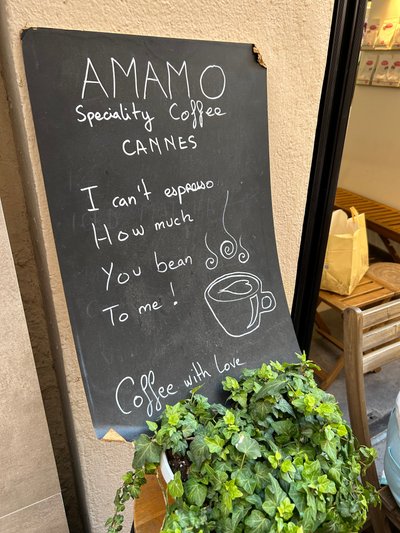 AMAMO
Speciality Coffee
CANNES
I can't espresso
How much
You bean
To me!
Coffee with Love